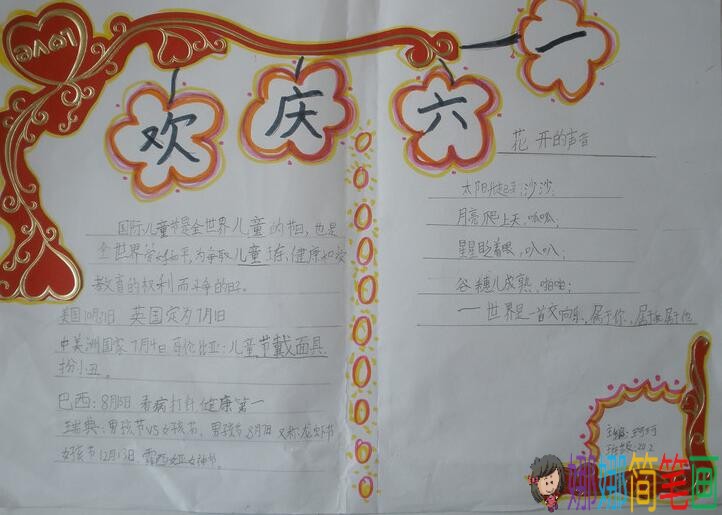 LOVE
欢庆六一
国际儿童节是全世界儿童的节日,也是
全世界 为争取儿童 健康和受
教育的权利而 的日。
美国10月31日 英国定为7月14日
中美洲国家7月4日哥伦比亚:儿童节戴面具
扮小丑。
巴西:8月15日 看病打针 健康第一
瑞典:男孩节VS女孩节,男孩节8月7日 又称:龙虾节
女孩节12月13日、露西娅女神节。
花 开的声音
太阳 沙沙
月亮爬上天,呱呱,
星星眨着眼,叭叭;
谷穗儿成熟,啪啪;
一世界是一首交响乐,属于你,属于 属于他
主编:珂珂
班级:202
娜娜简笔画